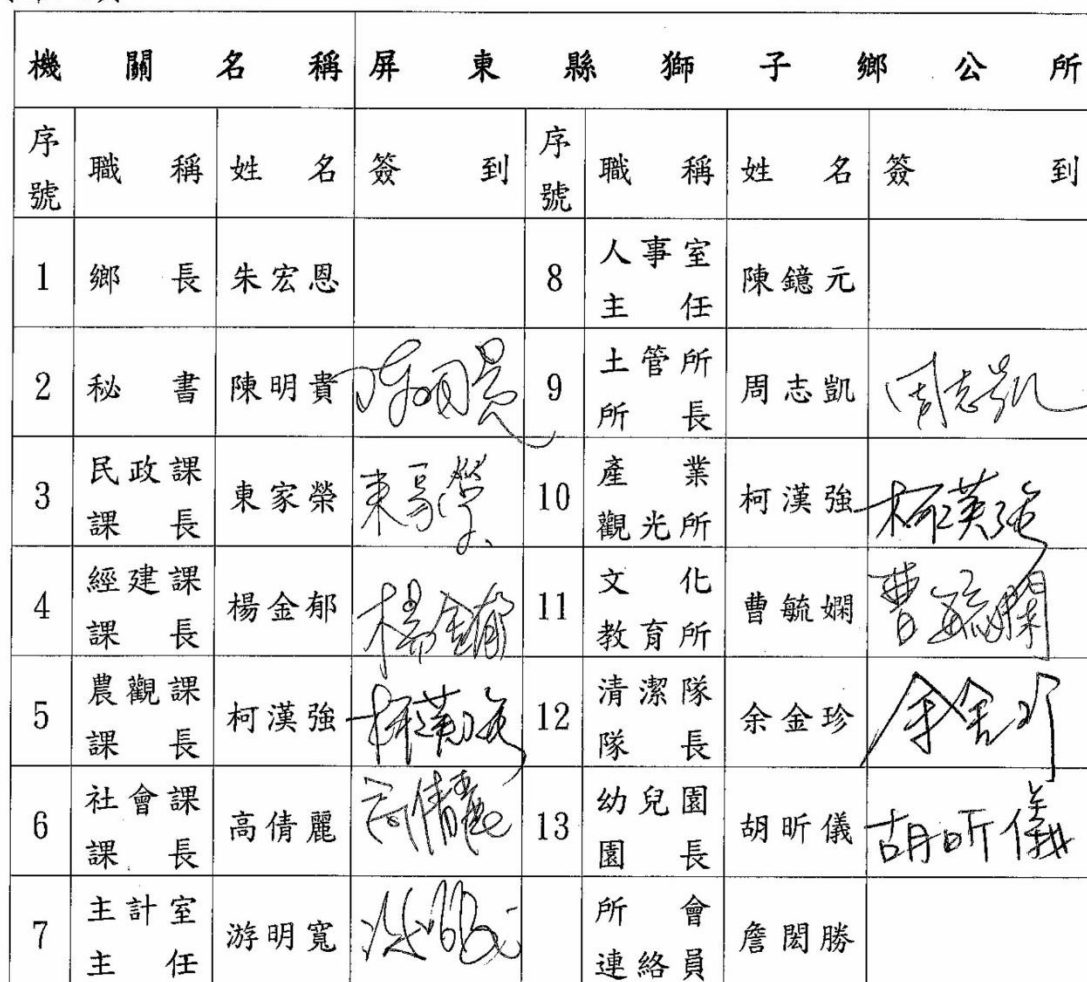 機關名稱 屏東縣獅子鄉公所
序號 職稱 姓名 簽到 序號 職稱 姓名 簽到
1 鄉長 朱宏恩 8 人事室主任 陳鐿元
2 秘書 陳明貴 陳明貴 9 土管所所長 周志凱 周志凱
3 民政課課長 東家榮 東家榮 10 產業觀光所 柯漢強 柯漢強
4 經建課課長 楊金郁 楊金郁 11 文化教育所 曹毓嫻 曹毓嫻
5 農觀課課長 柯漢強 柯漢強 12 清潔隊隊長 余金珍 余金珍
6 社會課課長 高倩麗 高倩麗 13 幼兒園園長 胡昕儀 胡昕儀
7 主計室主任 游明寬 所會連絡員 詹閎勝